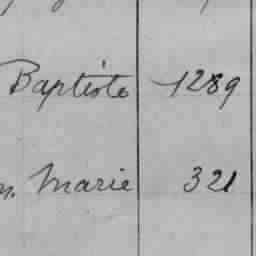 Baptiste 1289
n. Marie 321